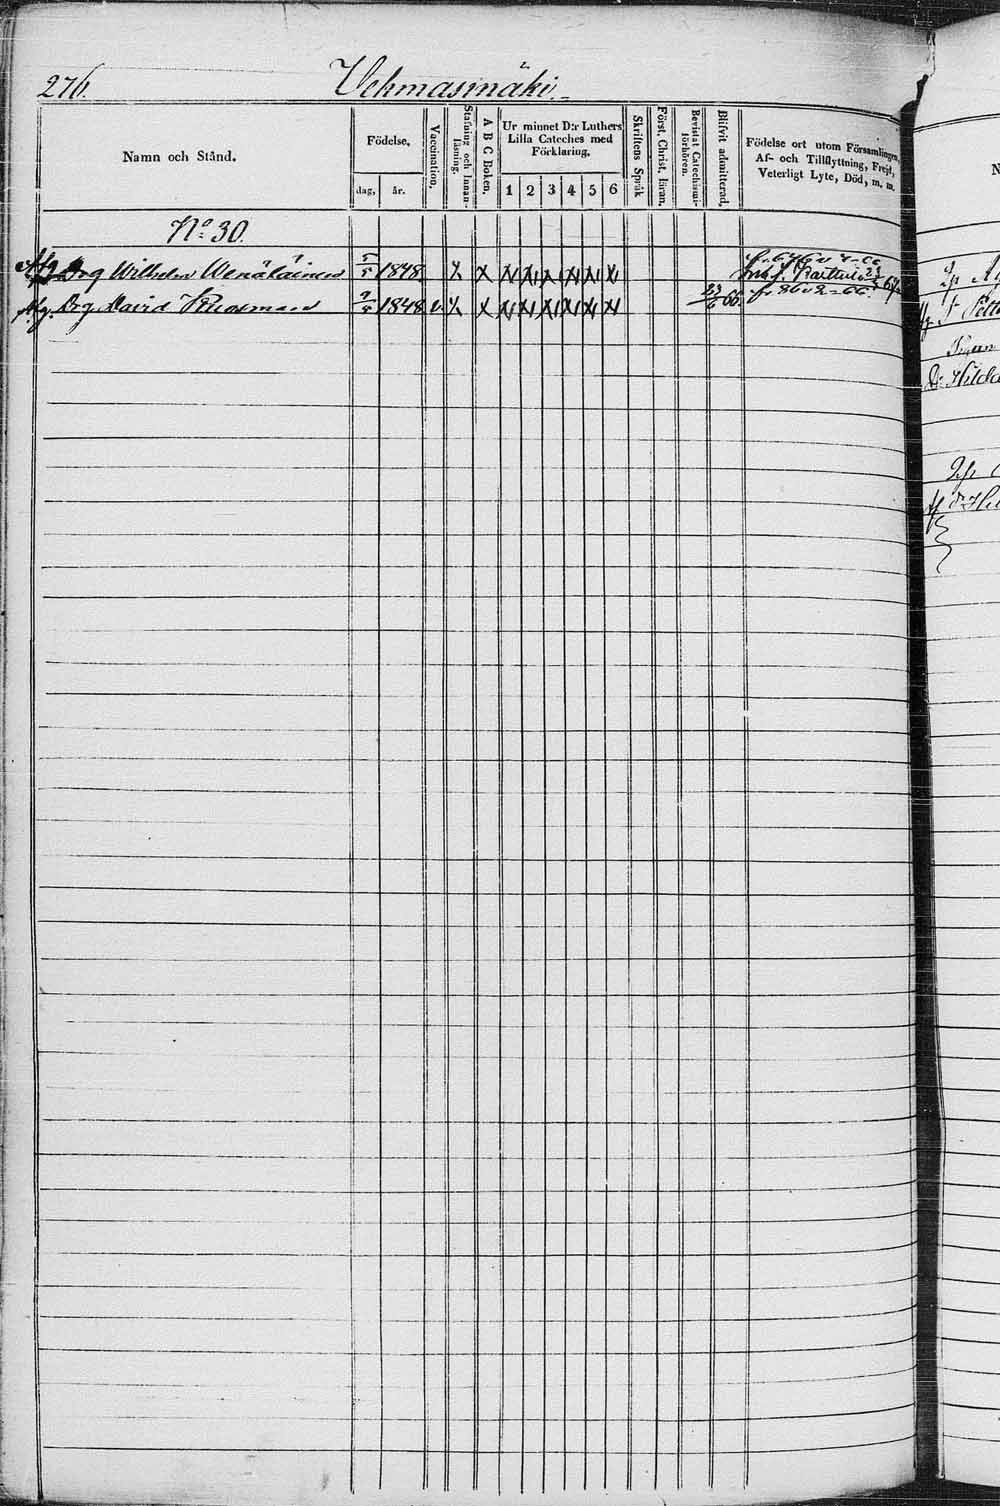 276. Vehmasmäki.
Namn och Stånd.
Födelse,
dag, år.
Vaccination,
Stafning och Innanläsning.
A B C Boken.
Ur minnet D:r Luthers
Lilla Cateches med
Förklaring,
1 2 3 4 5 6
Skriftens Språk
Först. Christ. läran,
Bevistat Catechismiförhören.
Blifvit admitterad,
Födelse ort utom Församlingen,
Af- och Tillflyttning, Frejd,
Veterligt Lyte, Död, m. m.
No 30.
Drg Wilhelm Wenäläinen 5/5 1848 X X X X X X X X
Drg David 1848 v. X X X X X X X X 66. fr. 86 v 2-66.
N
Hilda